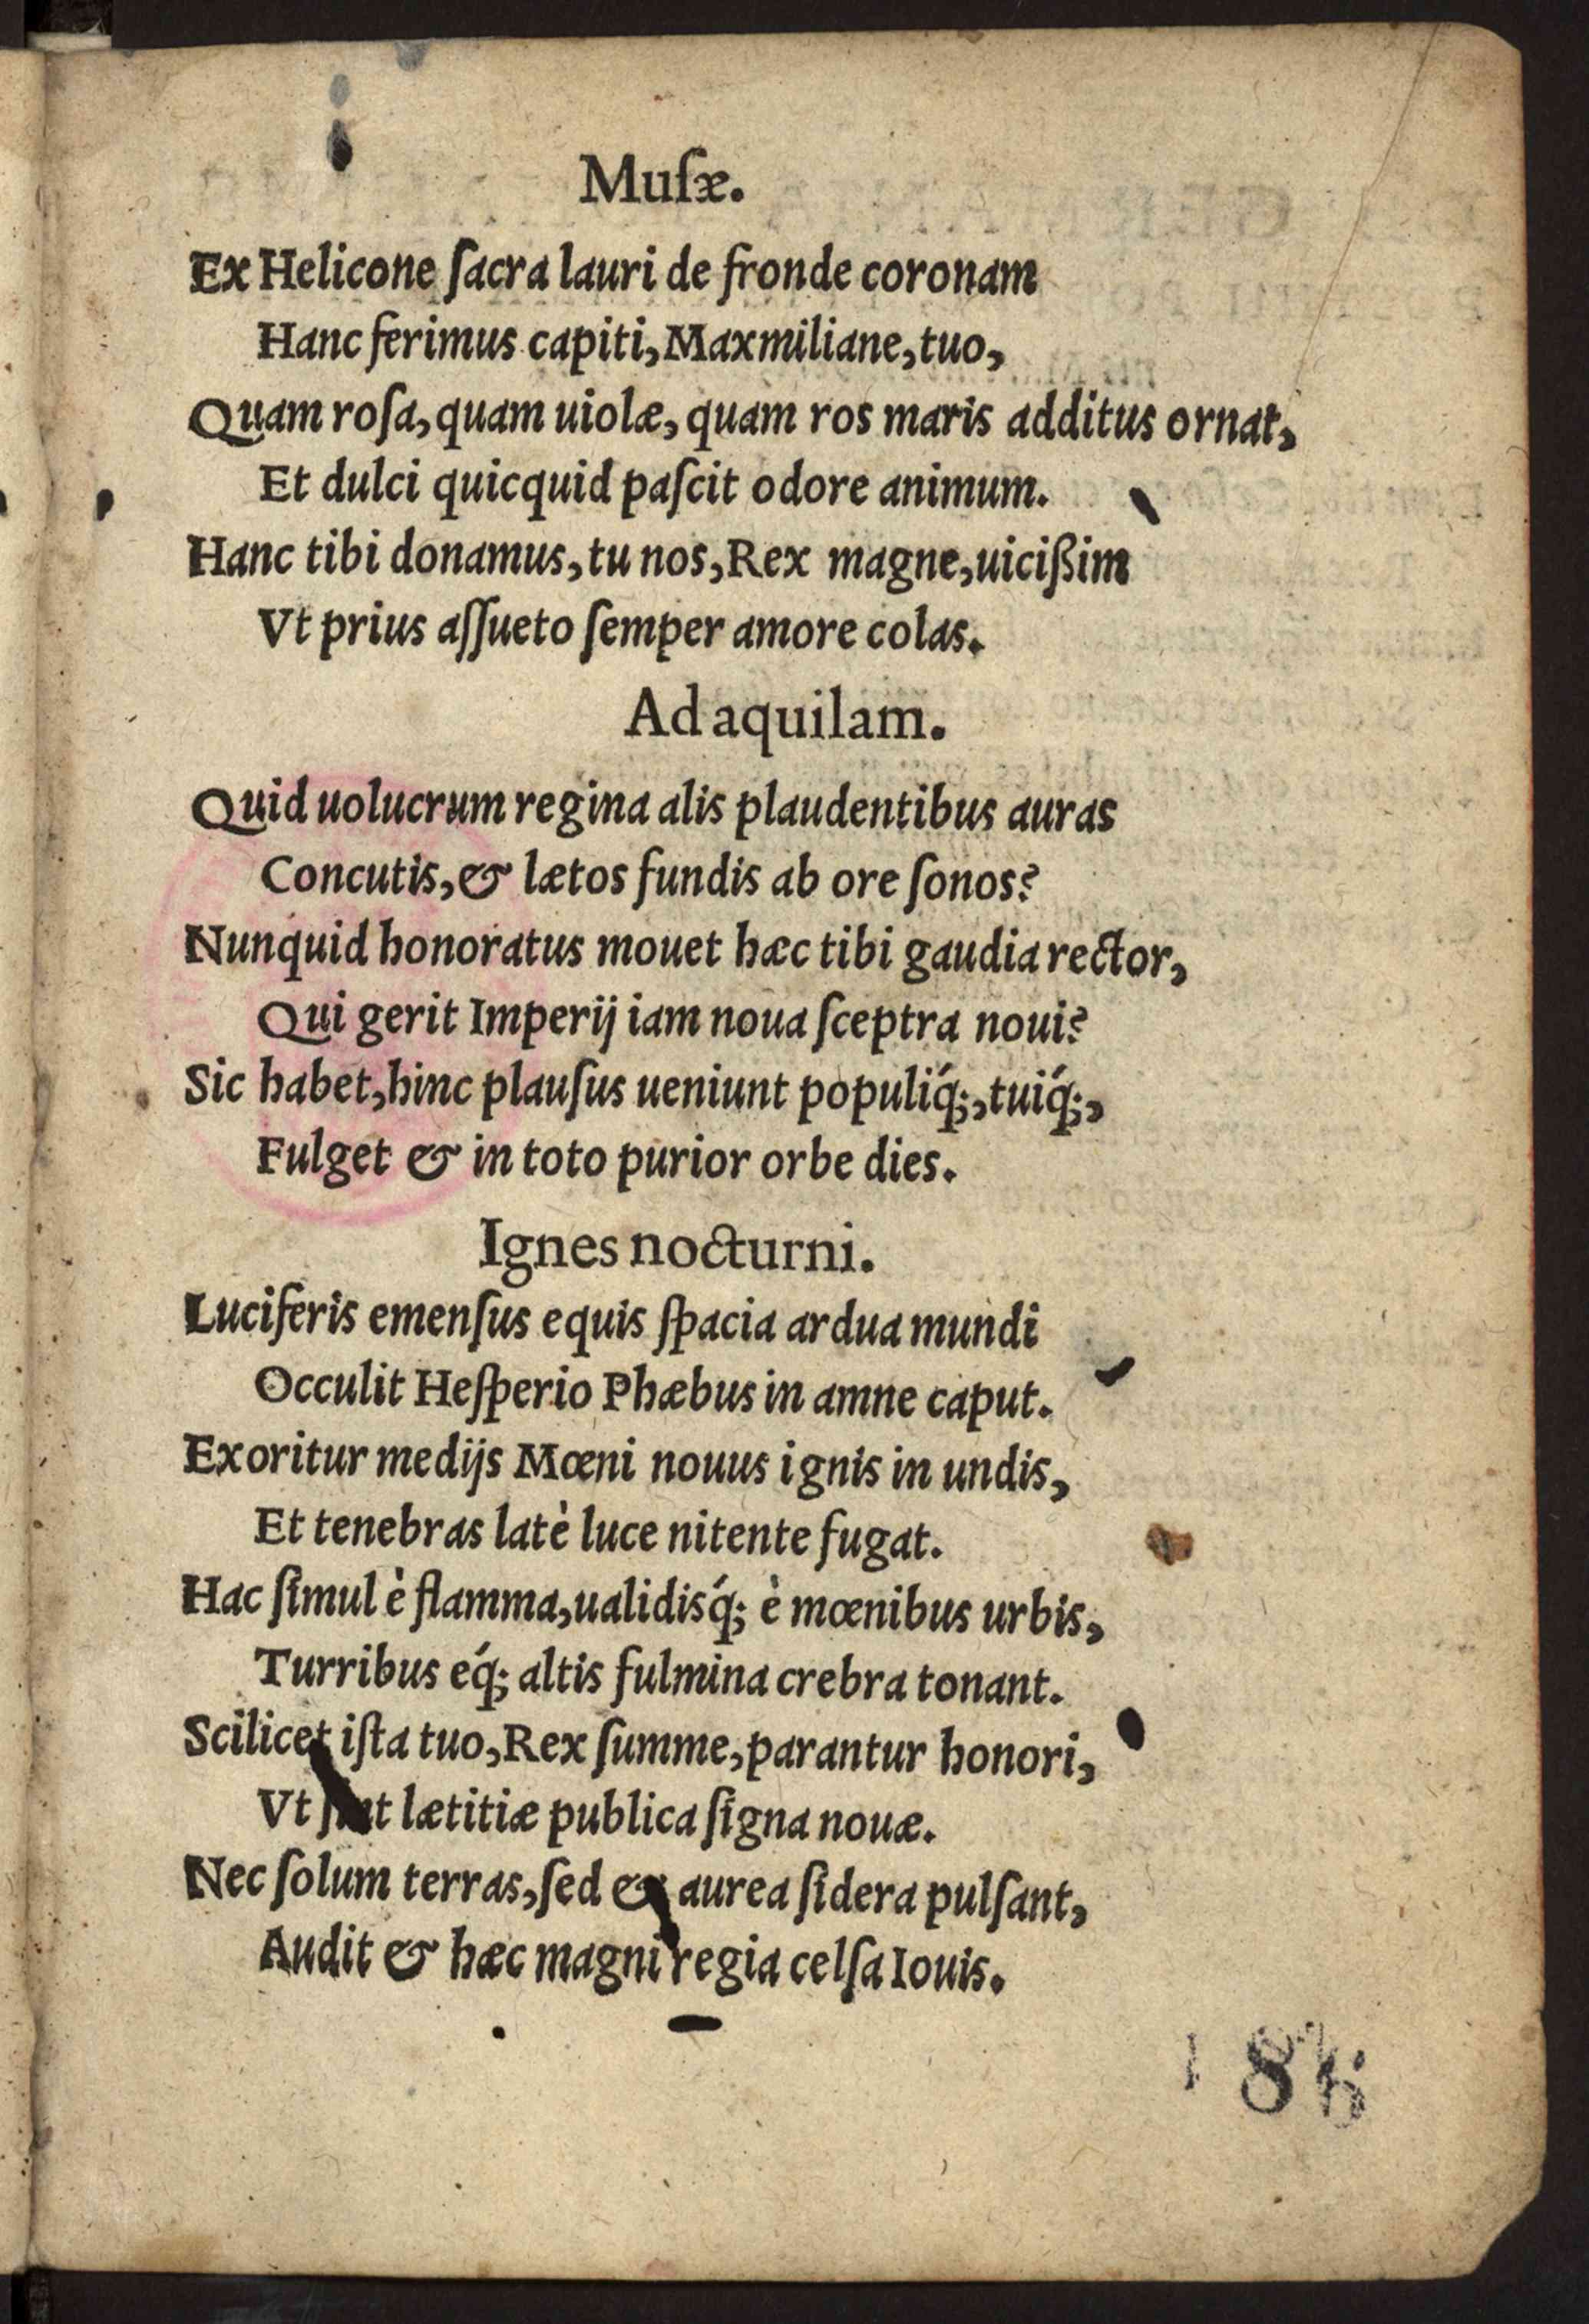 Muſæ.
Ex Helicone ſacra lauri de fronde coronam
Hanc ferimus capiti, Maxmiliane, tuo,
Quam roſa, quam uiolæ, quam ros maris additus ornat,
Et dulci quicquid paſcit odore animum.
Hanc tibi donamus, tu nos, Rex magne, uicißim
Vt prius aſſueto ſemper amore colas.
Ad aquilam.
Quid uolucrum regina alis plaudentibus auras
Concutis, & lætos fundis ab ore ſonos?
Nunquid honoratus mouet hæc tibi gaudia rector,
Qui gerit Imperij iam noua ſceptra noui?
Sic habet, hinc plauſus ueniunt populiq́;, tuiq́;,
Fulget & in toto purior orbe dies.
Ignes nocturni.
Luciferis emenſus equis ſpacia ardua mundi
Occulit Heſperio Phæbus in amne caput.
Exoritur medijs Mœni nouus ignis in undis,
Et tenebras latè luce nitente fugat.
Hac ſimul è flamma, ualidisq́; è mœnibus urbis,
Turribus eq́; altis fulmina crebra tonant.
Scilicet iſta tuo, Rex ſumme, parantur honori,
Vt lætitiæ publica ſigna nouæ.
Nec ſolum terras, ſed & aurea ſidera pulſant,
Audit & hæc magni regia celſa Iouis.